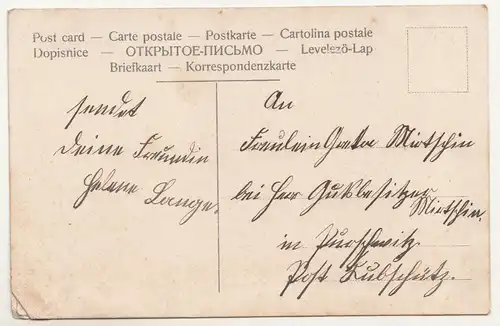 Post card — Carte postale — Postkarte — Cartolina postale
Dopisnice — ОТКРЫТОЕ-ПИСЬМО — Levelező-Lap
Briefkaart — Korrespondenzkarte
sendet
Deine Freundin
Helene Lange.
An
Fräulein Greta Mirtschin
bei Herr Gutsbesitzer
Mirtschin.
in Puschwitz.
Post Lubschütz.